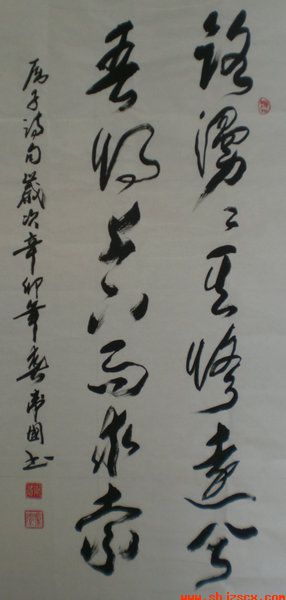 路漫々其修遠兮
吾将上下而求索
屈子詩句歲次辛卯年春衛國书
www.shjzscx.com